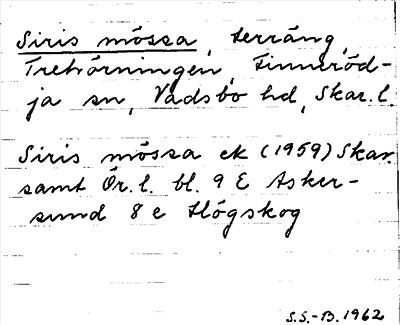 Siris mössa, terräng,
Trehörningen, Finneröd-
ja sn, Vadsbo hd, Skar.l.
Siris mössa ek (1959) Skar.
samt Ör.l. bl. 9 E Asker-
sund 8 e Högskog
S.S.-B. 1962